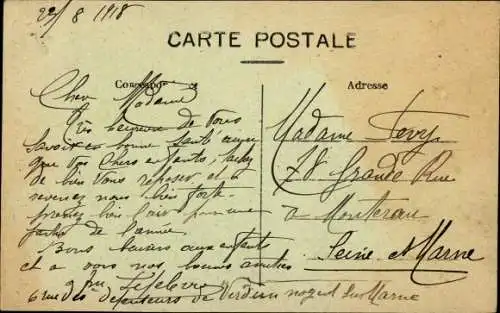 22/8 1918
CARTE POSTALE
Correspon
Adresse
Cher Madame
Très heureux de vous
savoir en bonne santé ainsi
que vos chers enfants, tachez
de bien vous reposer et
revenez nous bien forte
prenez bien l'air pour une
partie de l'année
Bons baisers aux enfants
et a vous nos bonnes amitiés
Lefebvre
6 rue des défenseurs de Verdun nogent sur Marne
Madame Levy
78 Grande Rue
a Montereau
Seine et Marne